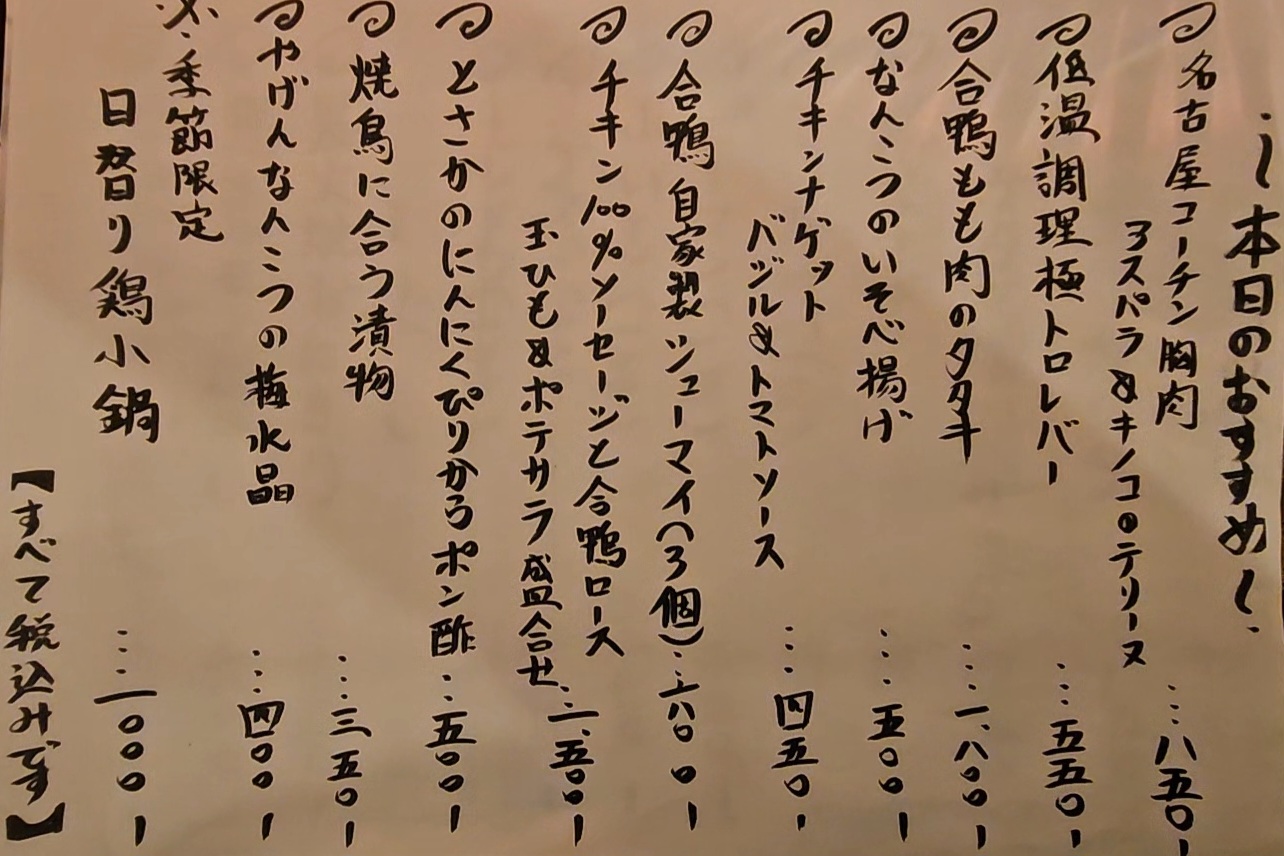 〜本日のおすすめ〜
名古屋コーチン胸肉
アスパラ&キノコのテリーヌ …八五〇ー
低温調理極トロレバー …五五〇ー
合鴨もも肉のタタキ …一、八〇〇ー
なんこつのいそべ揚げ …五〇〇ー
チキンナゲット
バジル&トマトソース …四五〇ー
合鴨自家製シューマイ(3個)
チキン100%ソーセージと合鴨ロース
玉ひも&ポテサラ盛合せ …一、五〇〇ー
とさかのにんにくぴりからポン酢 …五〇〇ー
焼鳥に合う漬物 …三五〇ー
やげんなんこつの梅水晶 …四〇〇ー
※季節限定
日替り鶏小鍋 …一〇〇〇ー
【すべて税込みです】